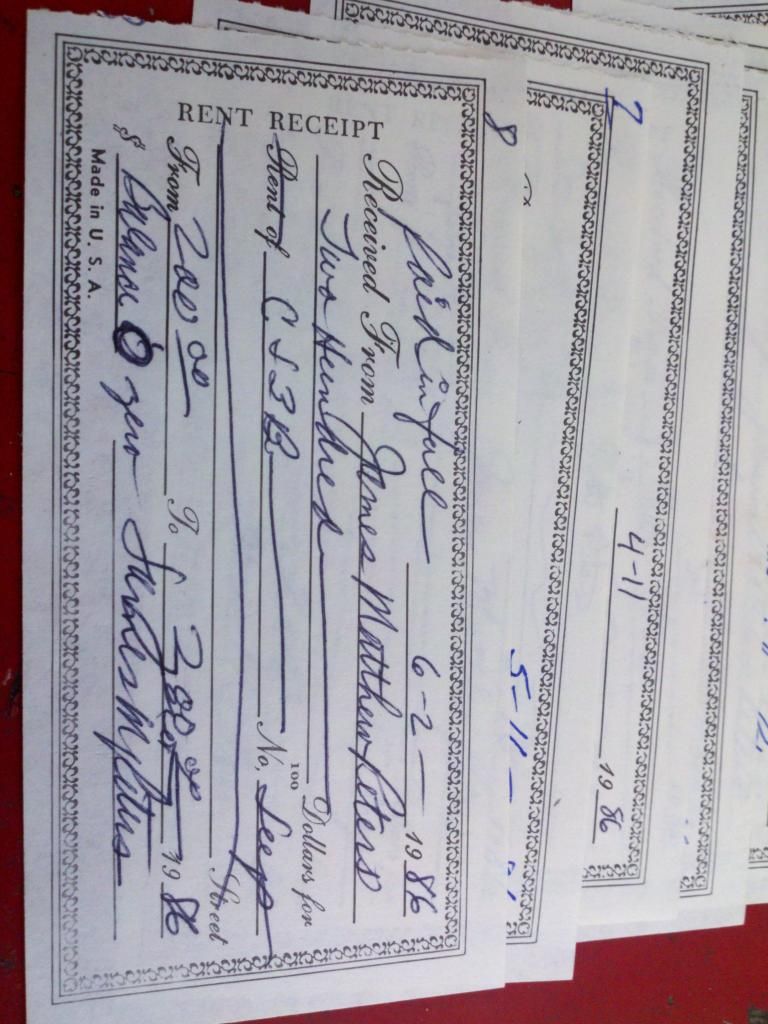 RENT RECEIPT
Paid in full 6-2- 1986
Received From James Matthew Peters
Two Hundred
100 Dollars for
Rent of CJ3B No. Jeep
Street
From 200 00 To 200 00 1986
$ Balance 0 zero
Made in U. S. A.
8
5-11-
7
4-11
1986
12